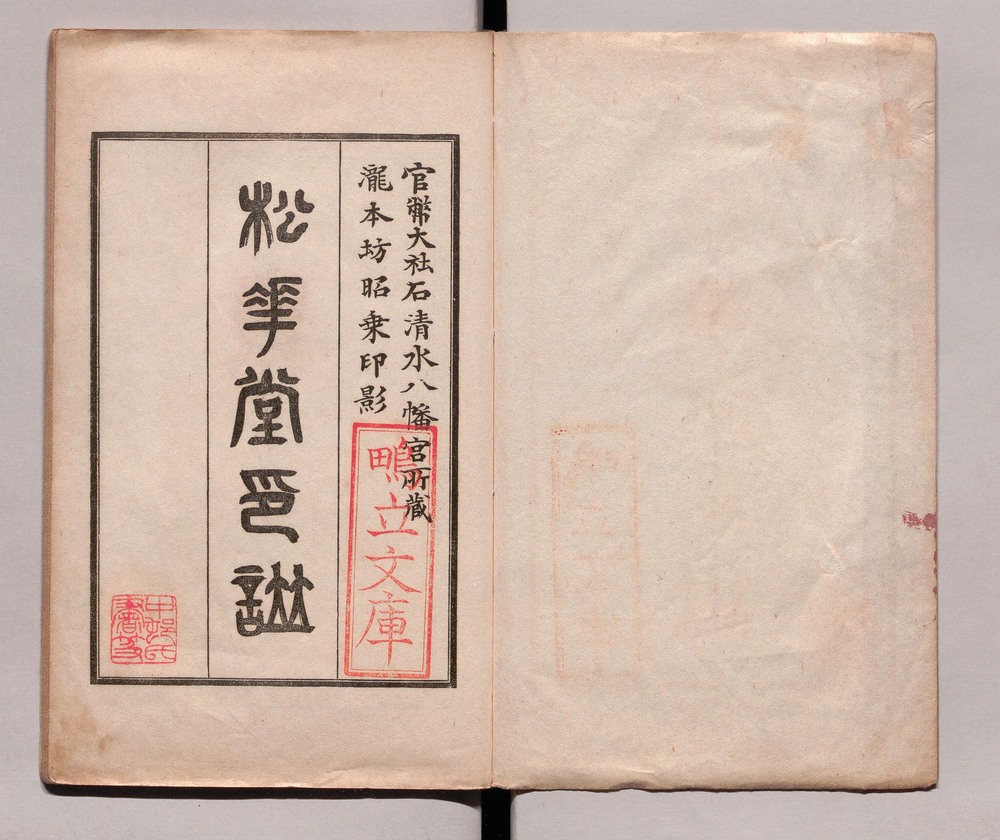 官幣大社石清水八幡宮所蔵
瀧本坊昭乗印影
鴫立文庫
松花堂印譜